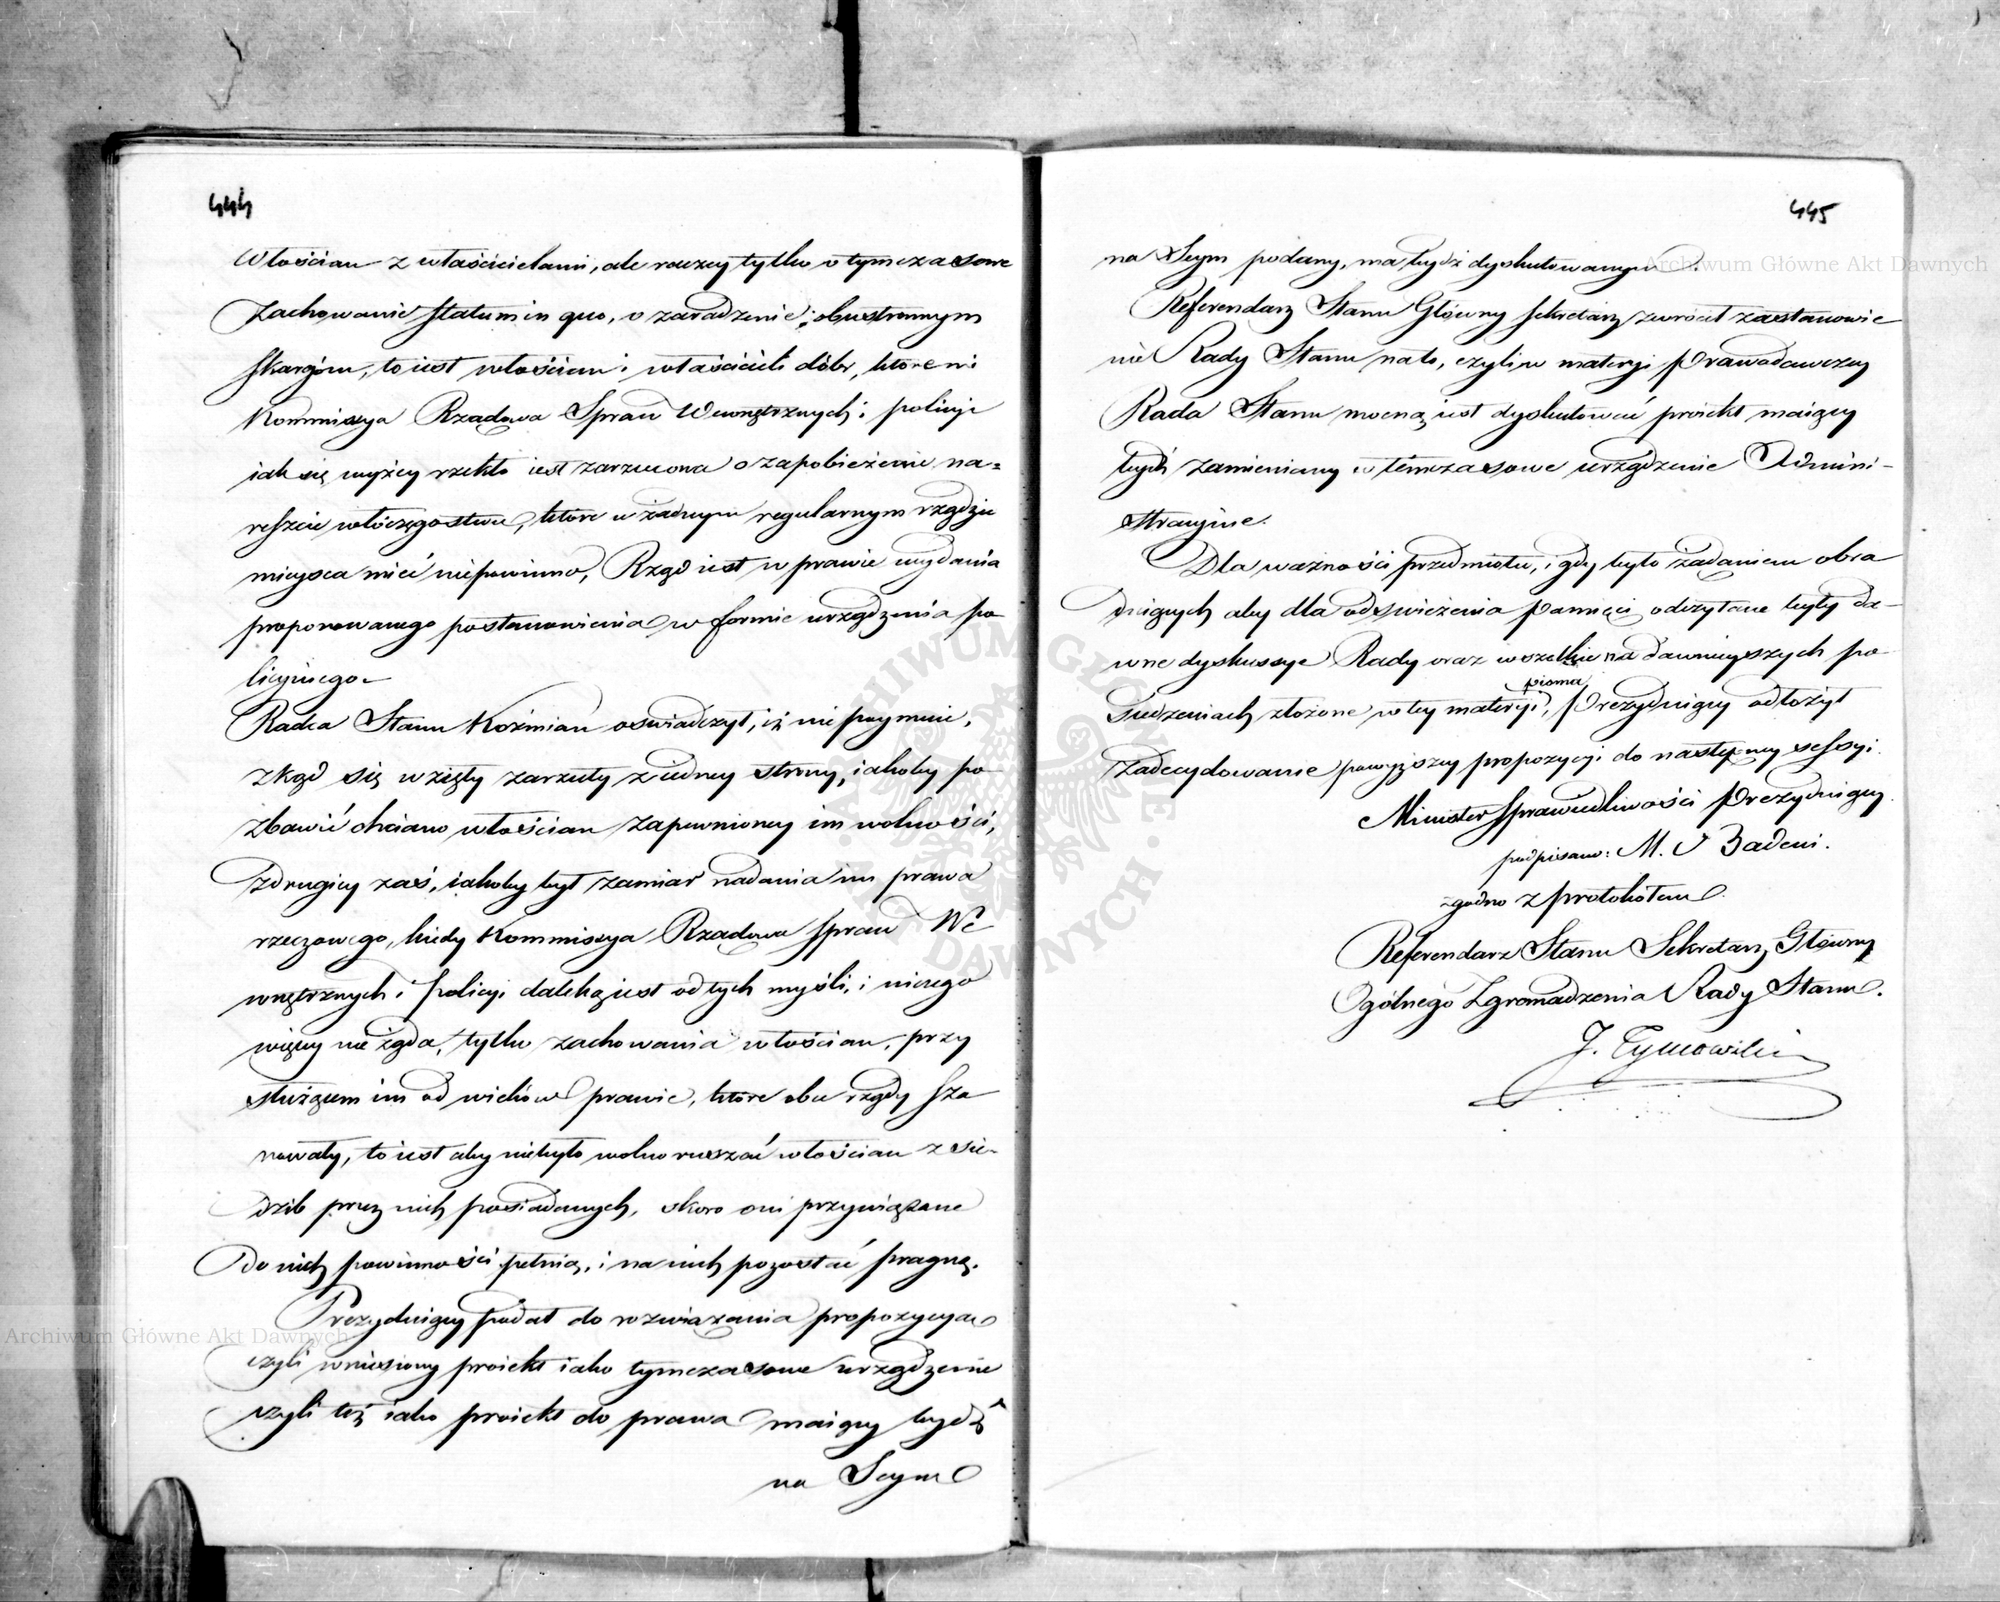 444
Włościan z właścicielami, ale raczey tylko o tymczasowe
zachowanie statum in quo, o zaradzenie obustronnym
skargom, to iest włościan i właścicieli dóbr, któremi
Kommissya Rządowa Spraw Wewnętrznych i policyi
iak się wyżey rzekło iest zarzucona o zapobieżenie na=
reszcie włóczęgostwu, które w żadnym regularnym rządzie
mieysca mieć niepowinno, Rząd iest w prawie wydania
proponowanego postanowienia w formie urządzenia po
licyinego
Radca Stanu Koźmian oswiadczył, iż nie poymuie,
zkąd się wzięły zarzuty z iedney strony, iakoby po
zbawić chciano włościan zapewnioney im wolności,
z drugiey zaś, iakoby był zamiar nadania im prawa
rzeczowego, kiedy Kommissya Rządowa spraw We
wnętrznych i policyi daleką iest od tych myśli, i niczego
więcey nie żąda, tylko zachowania włościan, przy
służącem im od wieków prawie, które oba rządy sza
nowały, to iest aby niebyło wolno ruszać włościan z sie-
dzib przez nich posiadanych, skoro oni przywiązane
do nich powinności pełnią, i na nich pozostać pragną.
Prezyduiący podał do rozwiązania propozycyą
czyli wniesiony proiekt iako tymczasowe urządzenie
czyli też iako proiekt do prawa maiący bydź
na Seym
445
na Seym podany, ma bydź dyskutowanym.
Referendarz Stanu Główny sekretarz zwrócił zastanowie
nie Rady Stanu na to, czyli w materyi prawodawczey
Rada Stanu mocną iest dyskutować proiekt maiący
bydź zamieniany w timczasowe urządzenie Admini-
stracyine.
Dla ważności przedmiotu, i gdy było żądaniem obra
duiących aby dla odświeżenia pamięci odczytane były da-
wne dyskussye Rady oraz wszelkie na dawnieyszych po
pisma
siedzeniach złożone w tey materyi, Prezyduiący odłożył
zadecydowanie powyższey propozycyi do następney sessyi.
Minister Sprawiedliwości Prezyduiący
podpisano: M. Badeni.
zgodno z protokołem
Referendarz Stanu Sekretarz Główny
Ogólnego Zgromadzenia Rady Stanu.
J. Tymowski
Archiwum Główne Akt Dawnych
Archiwum Główne Akt Dawnych
ARCHIWUM GŁÓWNE AKT DAWNYCH